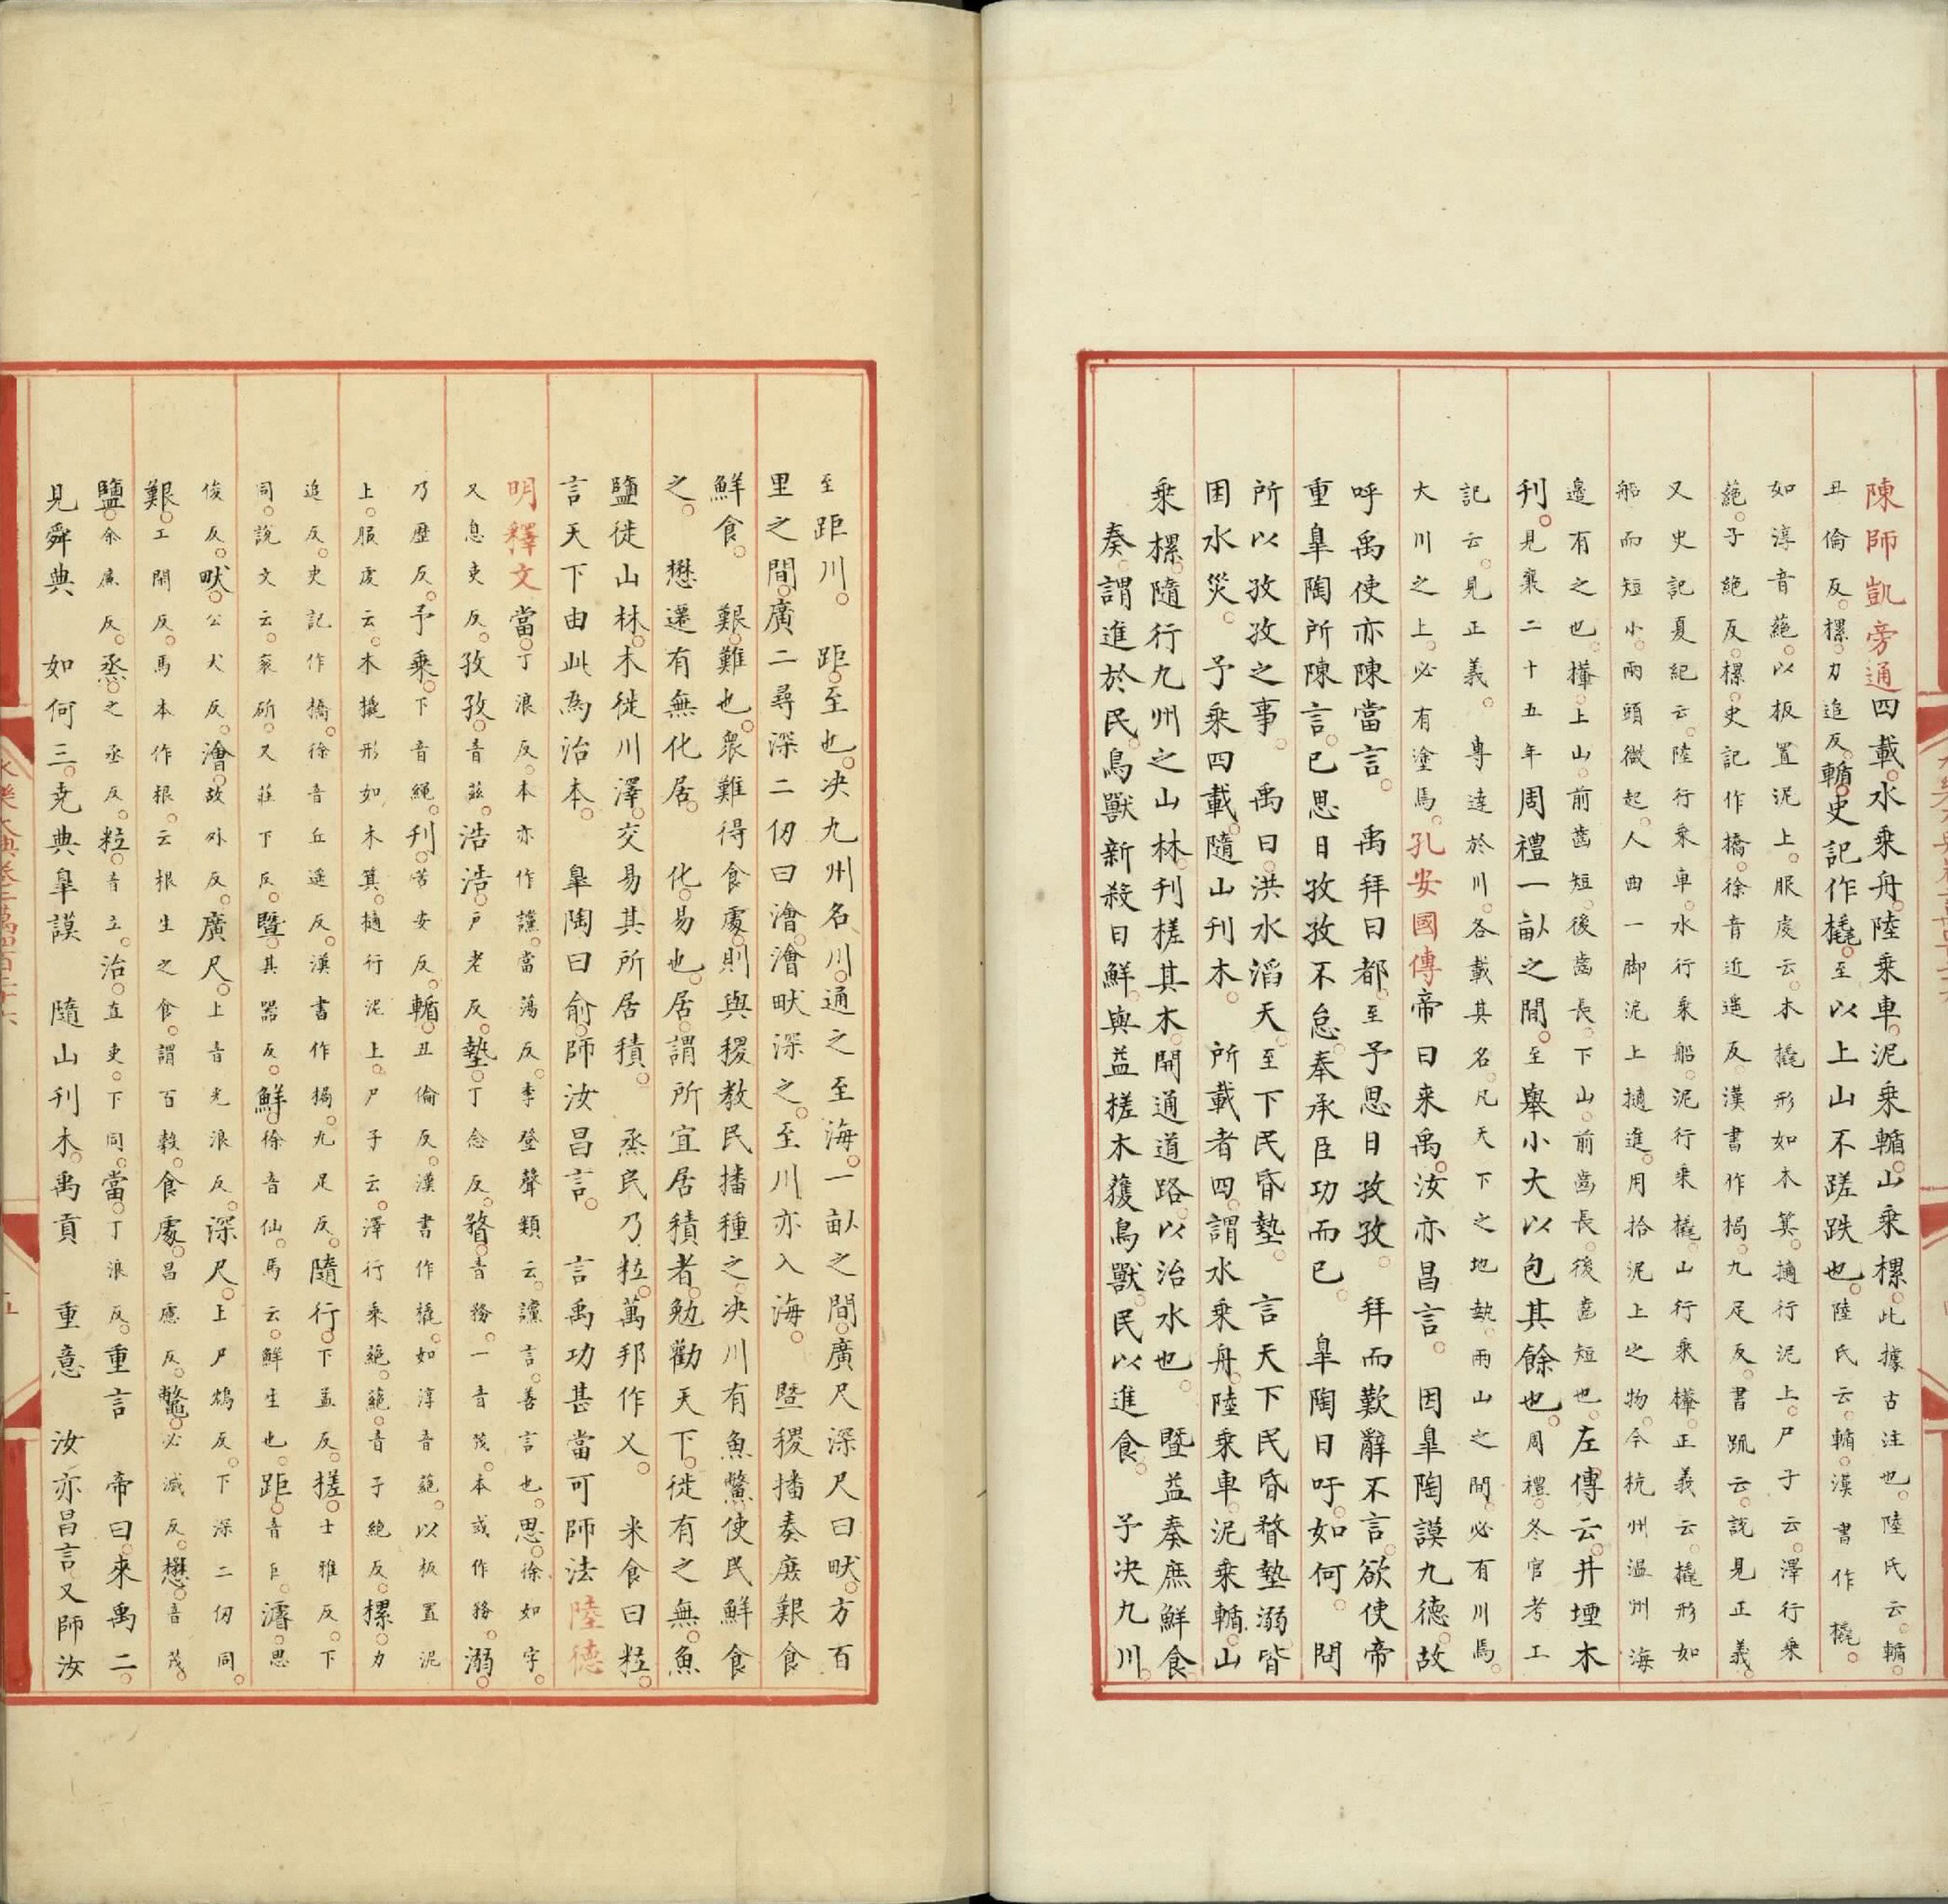 陳師凱旁通四載水乗舟陸乗車泥乗輴山乗樏此據古注也陸氏云輴
丑倫反樏力追反輴史記作橇至以上山不蹉跌也陸氏云輴漢書作橇
如淳音蕝以板置泥上服虔云木橇形如木箕擿行泥上尸子云澤行乗
蕝子絶反樏史記作橋徐音近遥反漢書作梮九足反書疏云説見正義
又史記夏紀云陸行乗車水行乗船泥行乗橇山行乗檋正義云橇形如
船而短小兩頭微起人曲一脚泥上擿進用拾泥上之物今杭州温州海
邉有之也檋上山前齒短後齒長下山前齒長後齒短也左傳云井堙木
刋見襄二十五年周禮一畝之間至舉小大以包其餘也周禮冬官考工
記云見正義専達於川各載其名凡天下之地埶兩山之間必有川焉
大川之上必有塗焉孔安國傳帝曰来禹汝亦昌言因臯陶謨九德故
呼禹使亦陳當言禹拜曰都至予思日孜孜拜而歎辭不言欲使帝
重臯陶所陳言已思日孜孜不怠奉承臣功而已臯陶曰吁如何問
所以孜孜之事禹曰洪水滔天至下民昏墊言天下民昏瞀墊溺皆
困水災予乗四載隨山刋木所載者四謂水乗舟陸乗車泥乗輴山
乗樏隨行九州之山林刋槎其木開通道路以治水也暨益奏庶鮮食
奏謂進於民鳥獸新殺曰鮮與益槎木獲鳥獸民以進食予決九川
至距川距至也决九州名川通之至海一畝之間廣尺深尺曰畎方百
里之間廣二尋深二仞曰澮澮畎深之至川亦入海暨稷播奏庶艱食
鮮食艱難也衆難得食處則與稷教民播種之决川有魚鱉使民鮮食
之懋遷有無化居化易也居謂所宜居積者勉勸天下徙有之無魚
鹽徙山林木徙川澤交易其所居積烝民乃粒萬邦作乂米食曰粒
言天下由此為治本臯陶曰俞師汝昌言言禹功甚當可師法陸德
明釋文當丁浪反本亦作讜當蕩反李登聲類云讜言善言也思徐如字
又息吏反孜孜音兹浩浩户老反墊丁念反瞀音務一音茂本或作務溺
乃歴反予乗下音繩刋苦安反輴丑倫反漢書作橇如淳音蕝以板置泥
上服虔云木橇形如木箕擿行泥上尸子云澤行乗蕝蕝音子絶反樏力
追反史記作橋徐音丘遥反漢書作梮九足反隨行下孟反槎士雅反下
同説文云衺斫又莊下反暨其器反鮮徐音仙馬云鮮生也距音巨濬思
俊反畎公犬反澮故外反廣尺上音光浪反深尺上尸鴆反下深二仞同
艱工閑反馬本作根云根生之食謂百穀食處昌慮反鼈必滅反懋音茂
鹽余廉反烝之丞反粒音立治直吏下同當丁浪反重言帝曰來禹二
見舜典如何三尭典臯謨隨山刋木禹貢重意汝亦昌言又師汝